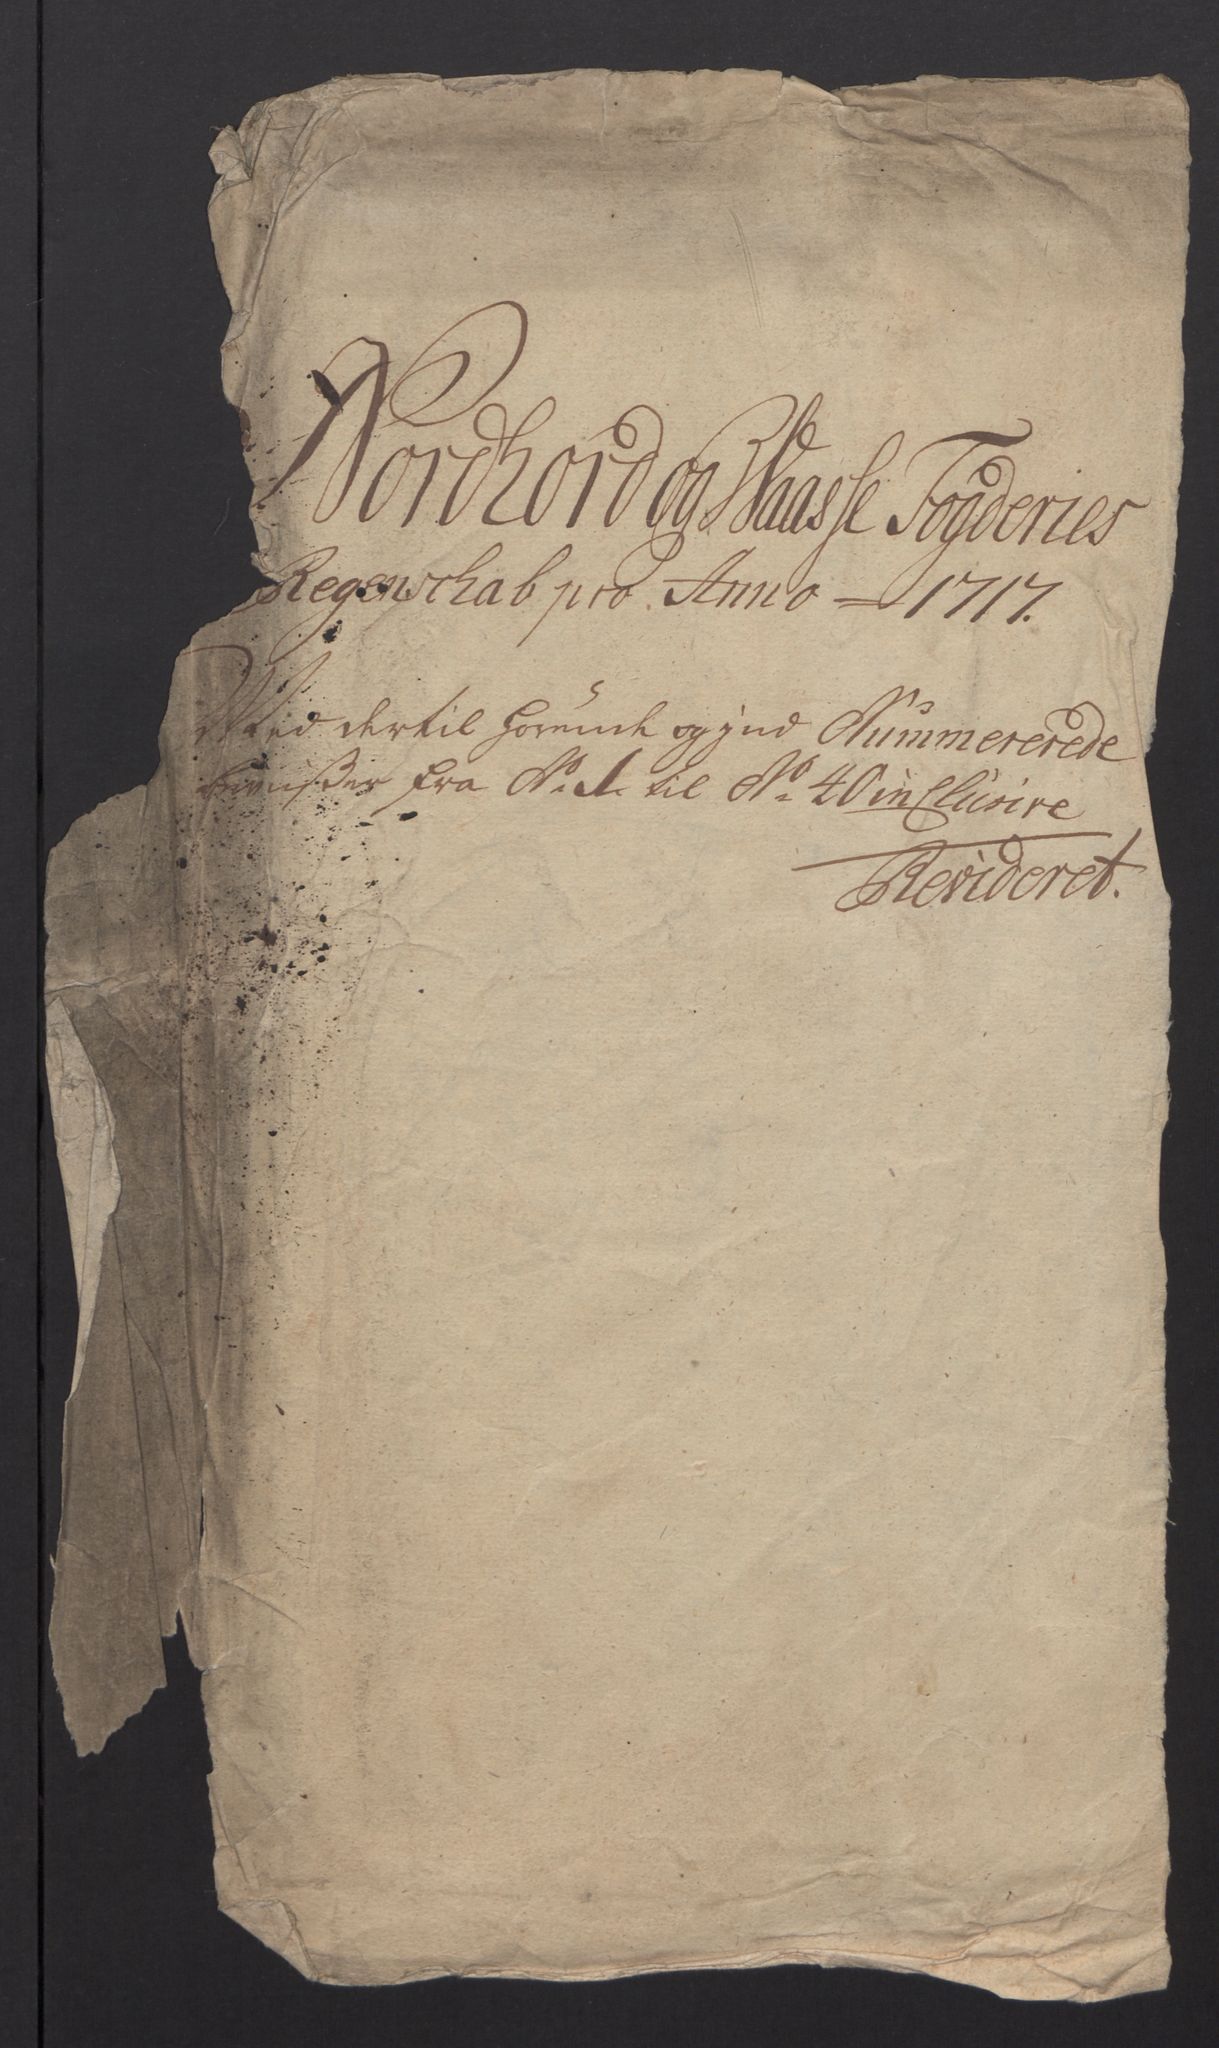 Nordhord og Waasse Fogderies
Regenschab pro Anno 1717.
Med dertil hörende og Nummererede
beviißer fra No. 1 til No. 40 inclusive
Revideret.